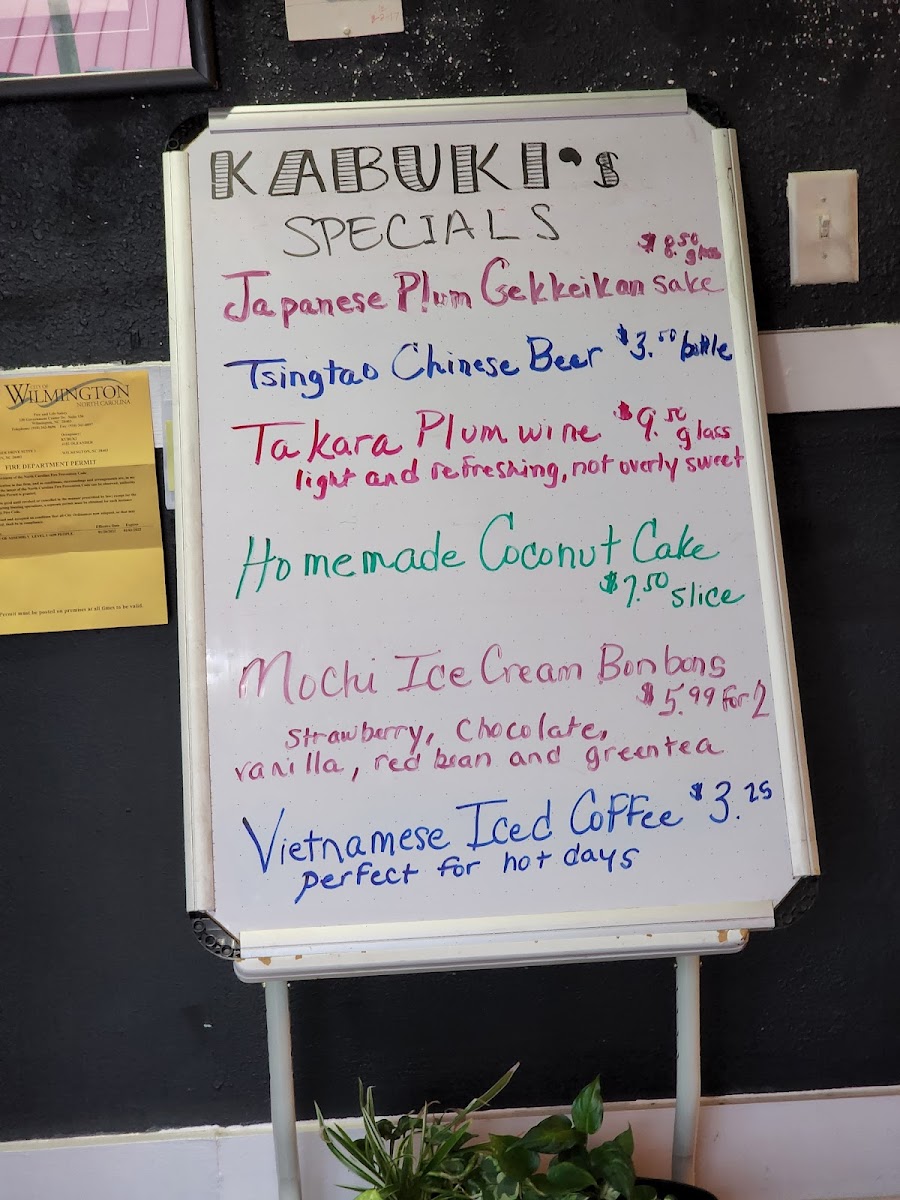 KABUKI's
SPECIALS
$8.50
glass
Japanese Plum Gekkeikan sake
Tsingtao Chinese Beer $3.50 bottle
Takara Plum wine $9.50
glass
light and refreshing, not overly sweet
Homemade Coconut Cake
$7.50 slice
Mochi Ice Cream Bonbons
$5.99 for 2
strawberry, chocolate,
vanilla, red bean and greentea
Vietnamese Iced Coffee $3.25
perfect for hot days
CITY OF
WILMINGTON
NORTH CAROLINA
FIRE DEPARTMENT PERMIT
Permit must be posted on premises at all times to be valid.